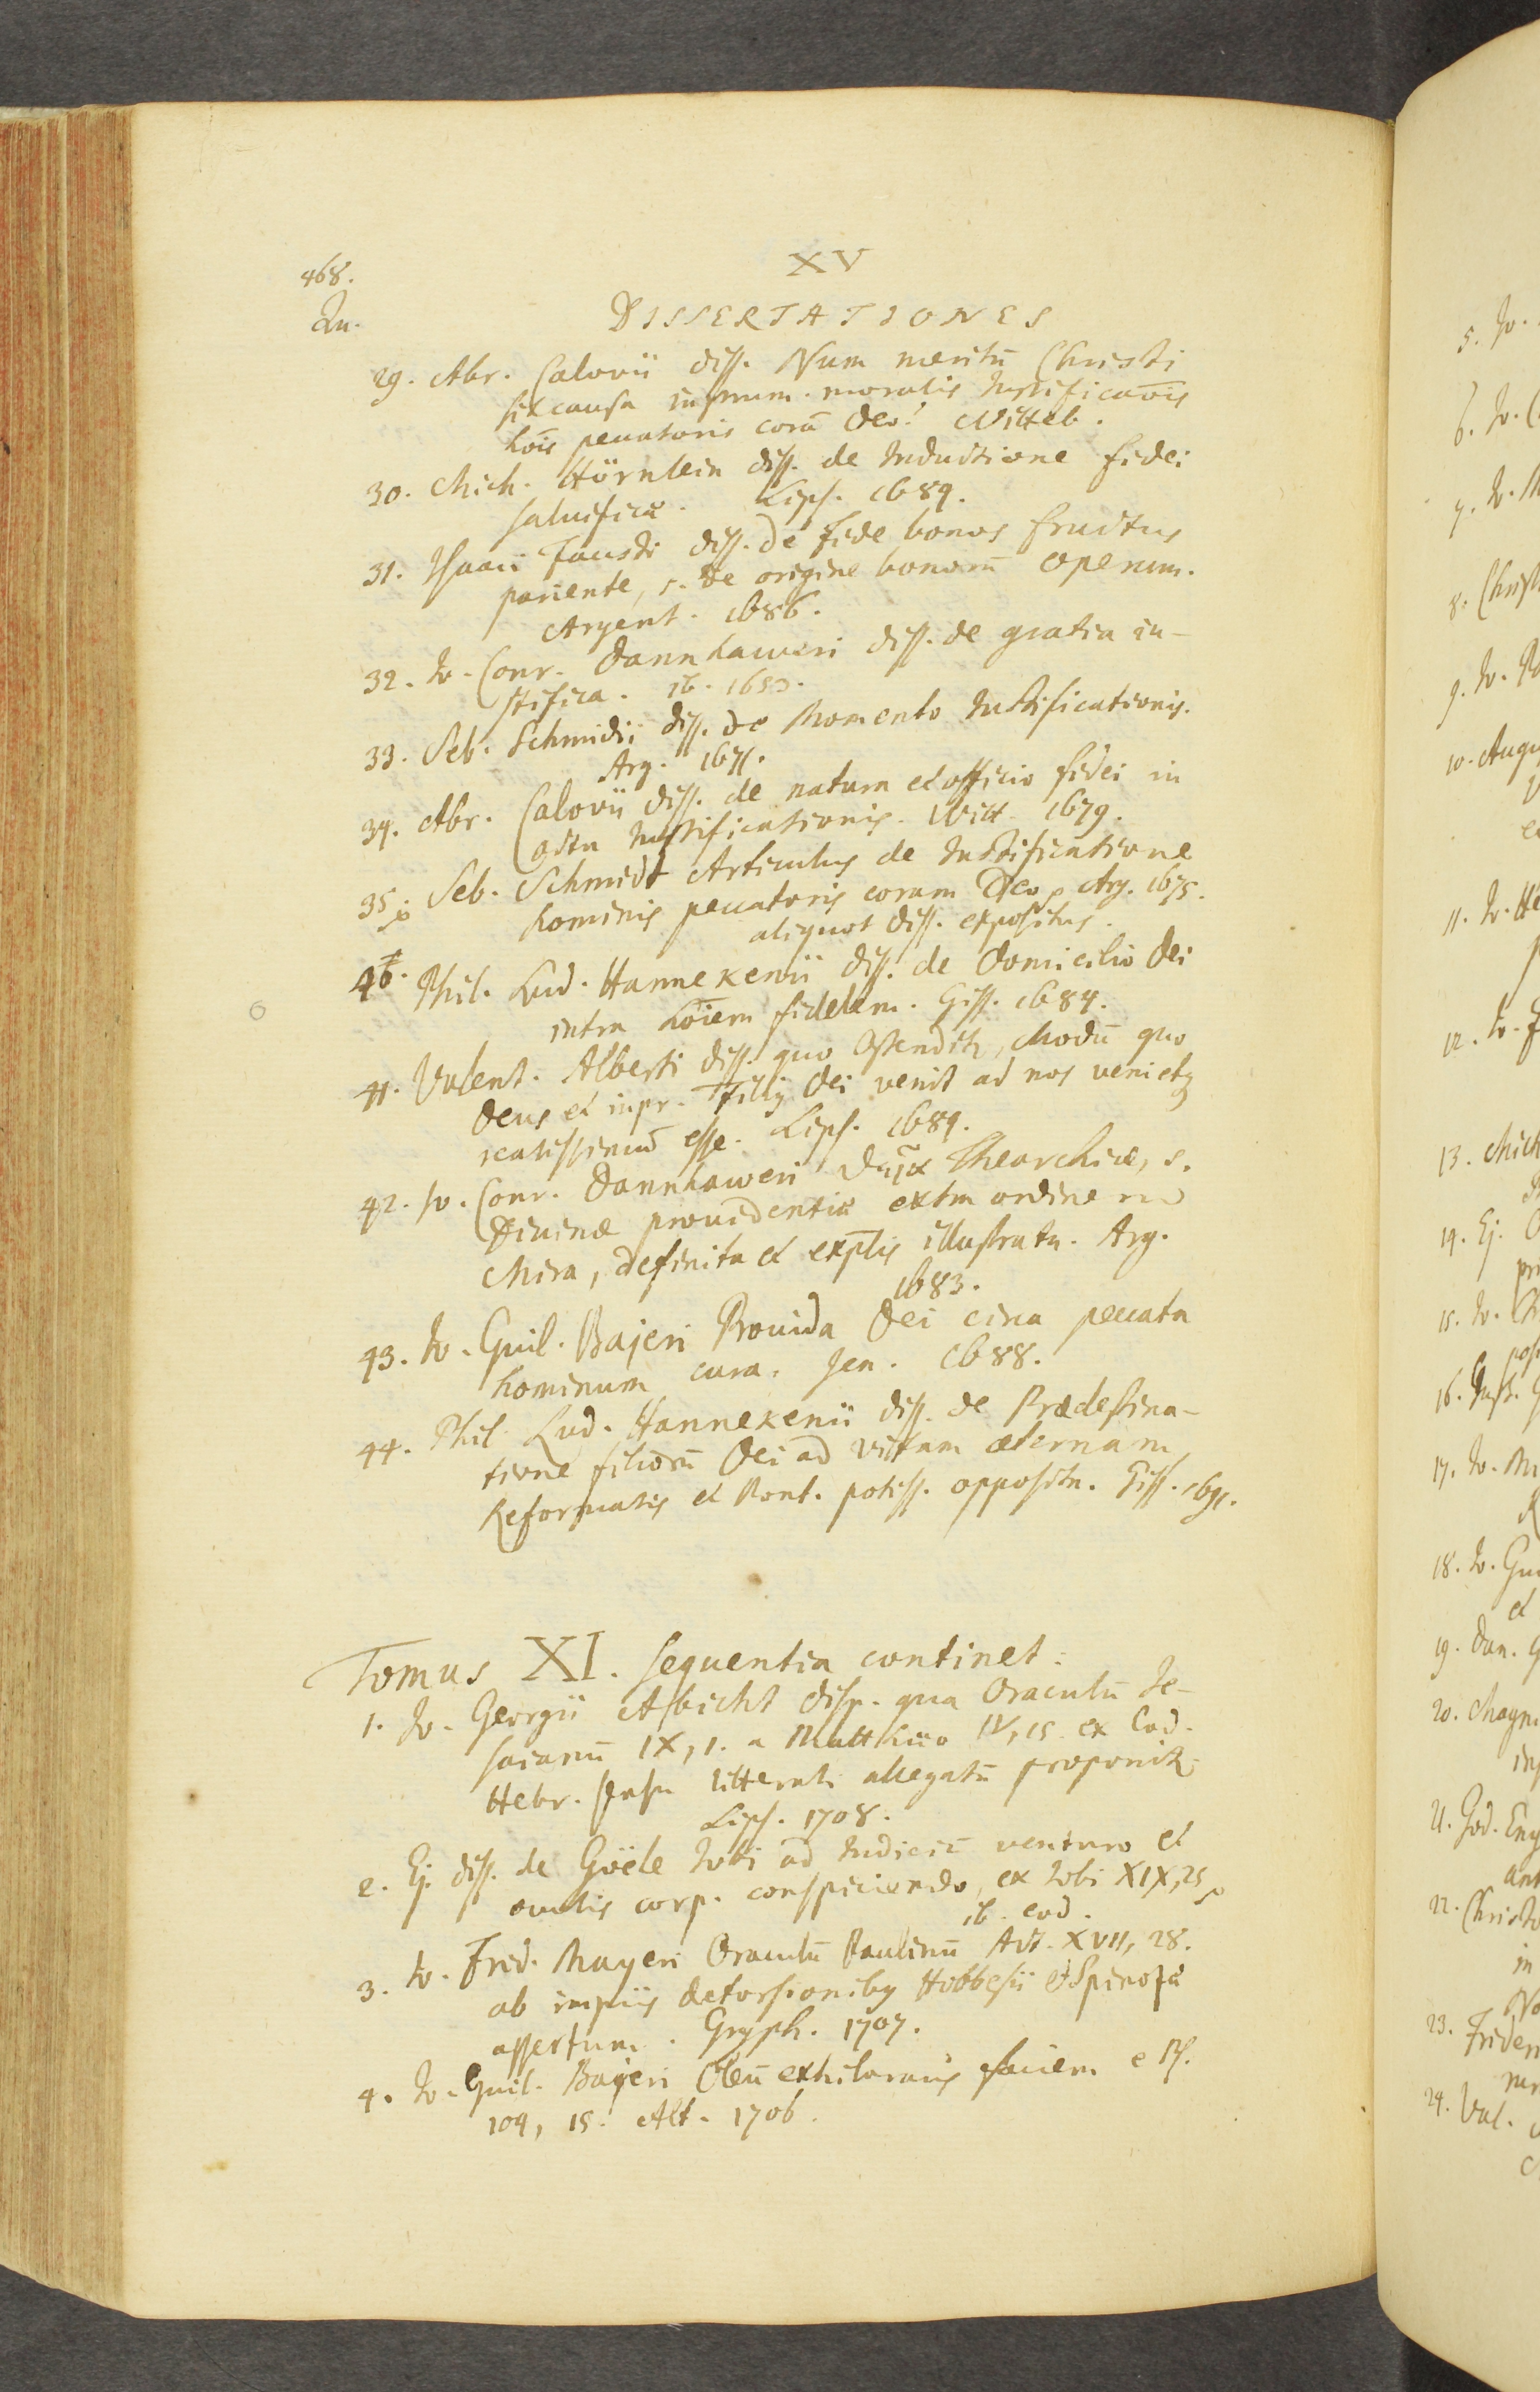 468.
XV
Qu.
DISSERTATIONES
29. Abr. Calovii diss. Num meritū Christi
sit causa instrum. moralis Iustificaōis
hoīs peccatoris corā Deo? Witteb.
30. Mich. Hörnlein diss. de Inductione fidei
salvificæ. Lips. 1689.
31. Isaaci Fausti diss. de fide bonos fructus
pariente, s. de origine bonorū operum.
Argent. 1686.
32. Io. Conr. Dannhaweri diss. de gratia iu-
stifica. ib. 1650.
33. Seb. Schmidii diss. de Momento Iustificationis.
Arg. 1671.
34. Abr. Calovii diss. de natura et officio fidei in
actu Iustificationis. Witt. 1679.
35. Seb. Schmidt Articulus de Iustificatione
hominis peccatoris coram Deo Arg. 1675.
aliquot diss. expositus.
40. Phil. Lud. Hannekenii diss. de Domicilio Dei
intra hoīem fidelem. Giss. 1684.
41. Valent. Alberti diss. quo Ostendit, Modū quo
Deus et inpr. Filius Dei venit ad nos venietq
realissimū esse. Lips. 1689.
42. Io. Conr. Dannhaweri Theorchiæ, s.
Divinæ providentiæ extra ordinem
Mira, definita et explis illustrata. Arg.
1683.
43. Io. Guil. Bajeri Provida Dei circa peccata
hominum cura. Jen. 1688.
44. Phil. Lud. Hannekenii diss. de Prædestina-
tione filiorū Dei ad vitam æternam
Reformatis et Pont. potiss. opposita. Giss. 1691.
Tomus XI. sequentia continet:
1. Io. Georgii Abicht disp. qua Oraculū Je-
saianū IX, 1. a Matthæo IV, 15. ex Cod.
Hebr. sensu litterali allegatū proponit.
Lips. 1708.
2. Ej. diss. de Goële Iobi ad Iudiciū venturo et
oculis corp. conspiciendo, ex Iobi XIX, 25
ib. eod.
3. Io. Frid. Mayeri Oraculū Paulinū Act. XVII, 28.
ab impiis detorsionibus Hobbesii et Spinozæ
assertum. Gryph. 1707.
4. Io. Guil. Bajeri Oleū exhilarans faciem e Ps.
104, 15. Alt. 1706.
5. Io.
6. Io.
7. Io. M
8. Christ
9. Io.
10. Augu
11. Io. He
12. Io. F
13. Mich
14. Ej.
15. Io. Ch
16. Just.
17. Io.
18. Io. Gui
et
19. Dan. G
20. Magni
21. God. Eng
ant
22. Christo
in
23. Frideri
24. Val.